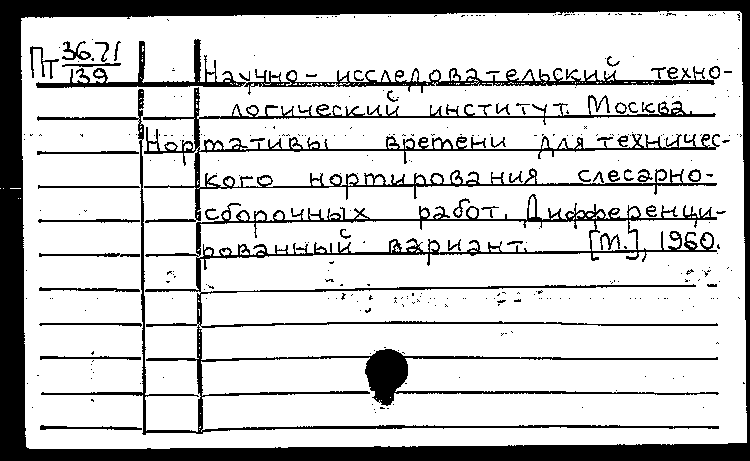 Пт 36.71/139
Научно-исследовательский техно-
логический институт. Москва.
Нормативы времени для техничес-
кого нормирования слесарно-
сборочных работ. Дифференци-
рованный вариант. [М.], 1960.